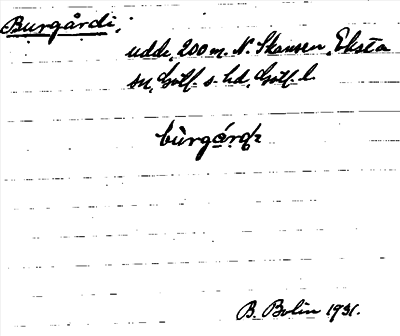 Burgårdi,
udde, 200 m. N. Skansen, Eksta
sn, Gotl. s. hd, Gotl. l.
bùrgárdɩ
B. Bolin 1931.